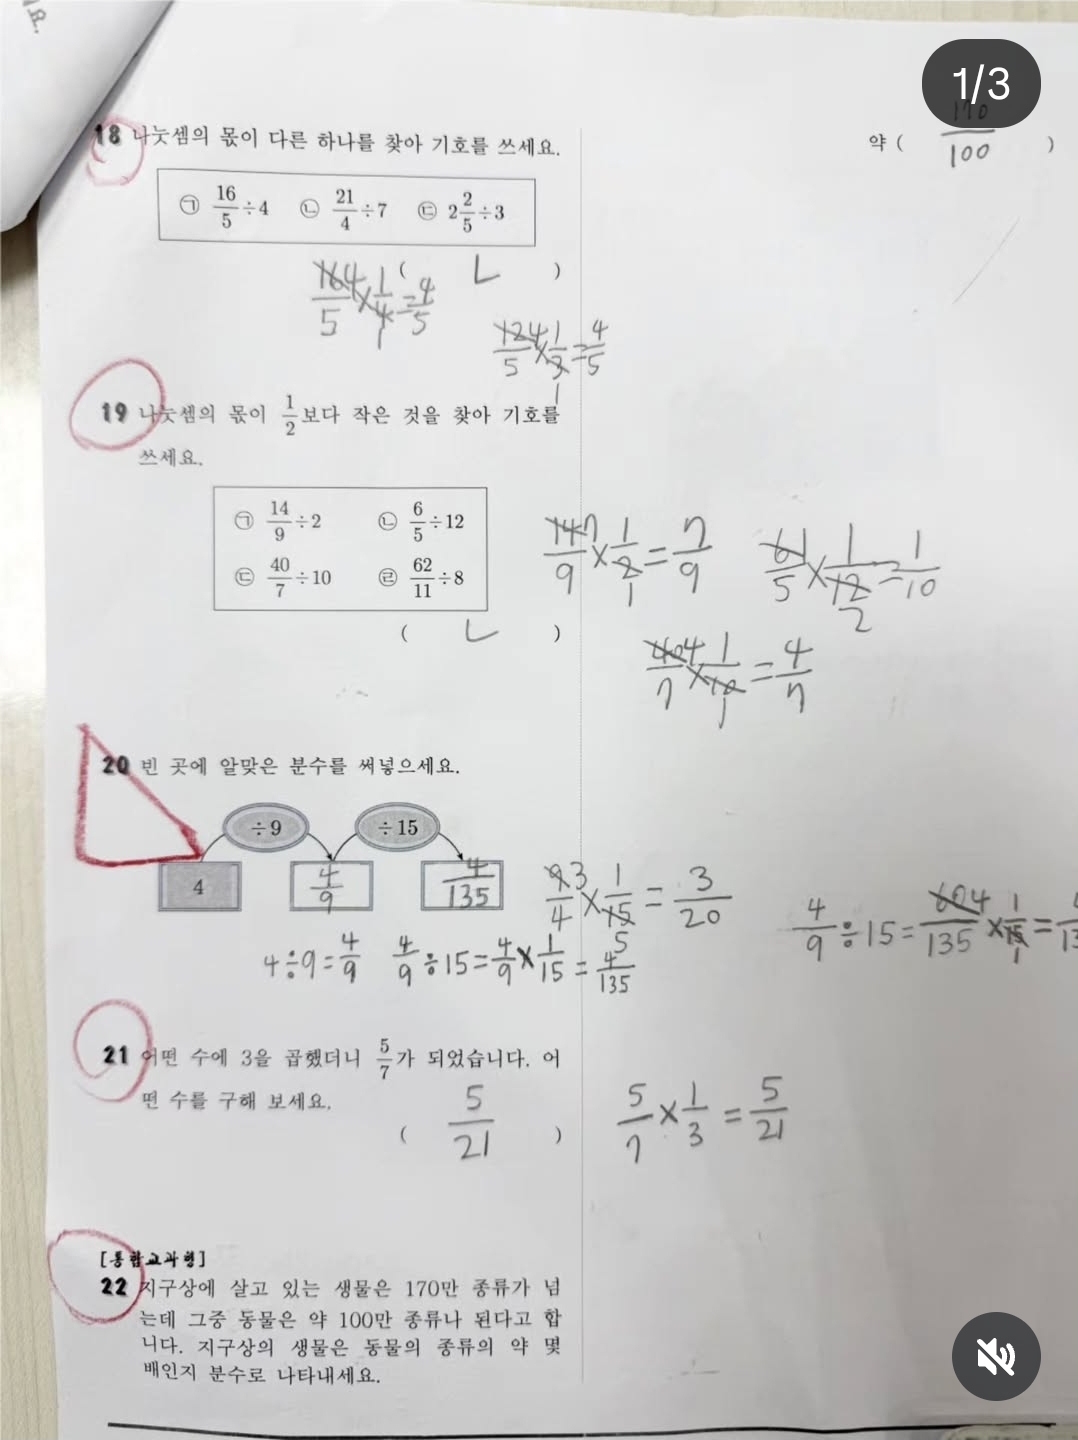 1/3
18 나눗셈의 몫이 다른 하나를 찾아 기호를 쓰세요.
㉠ 16/5÷4 ㉡ 21/4÷7 ㉢ 2 2/5÷3
( ㄴ )
16 4/5×1/4 1=4/5
12 4/5×1/3 1=4/5
19 나눗셈의 몫이 1/2보다 작은 것을 찾아 기호를
쓰세요.
㉠ 14/9÷2 ㉡ 6/5÷12
㉢ 40/7÷10 ㉣ 62/11÷8
( ㄴ )
14 7/9×1/2 1=7/9
6 1/5×1/12 2=1/10
40 4/7×1/10 1=4/7
20 빈 곳에 알맞은 분수를 써넣으세요.
÷9 ÷15
4 4/9 4/135
4÷9=4/9 4/9÷15=4/9×1/15=4/135
9 3/4×1/15 5=3/20
4/9÷15=60 4/135×1/15 1=
21 어떤 수에 3을 곱했더니 5/7가 되었습니다. 어
떤 수를 구해 보세요.
( 5/21 )
5/7×1/3=5/21
[통합교과형]
22 지구상에 살고 있는 생물은 170만 종류가 넘
는데 그중 동물은 약 100만 종류나 된다고 합
니다. 지구상의 생물은 동물의 종류의 약 몇
배인지 분수로 나타내세요.
약 ( 170/100 )